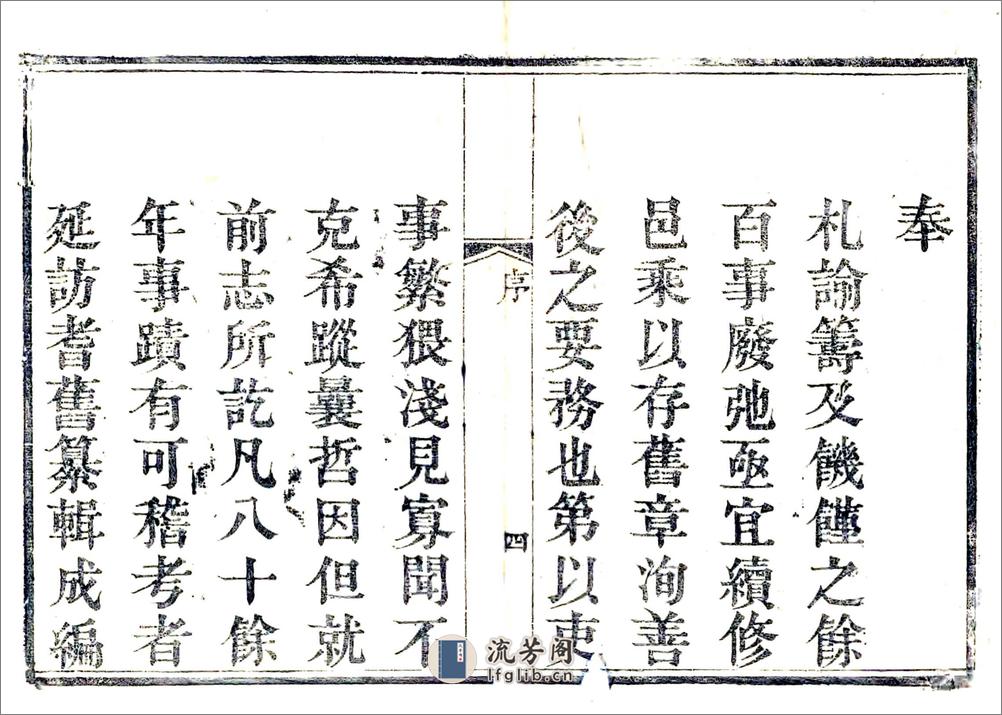 奉
札諭籌及饑饉之餘
百事廢弛亟宜續修
邑乘以存舊章洵善
後之要務也第以吏
序
四
事繁猥淺見寡聞不
克希蹤曩哲因但就
前志所訖凡八十餘
年事蹟有可稽考者
延訪耆舊纂輯成編
流芳阁
lfglib.cn